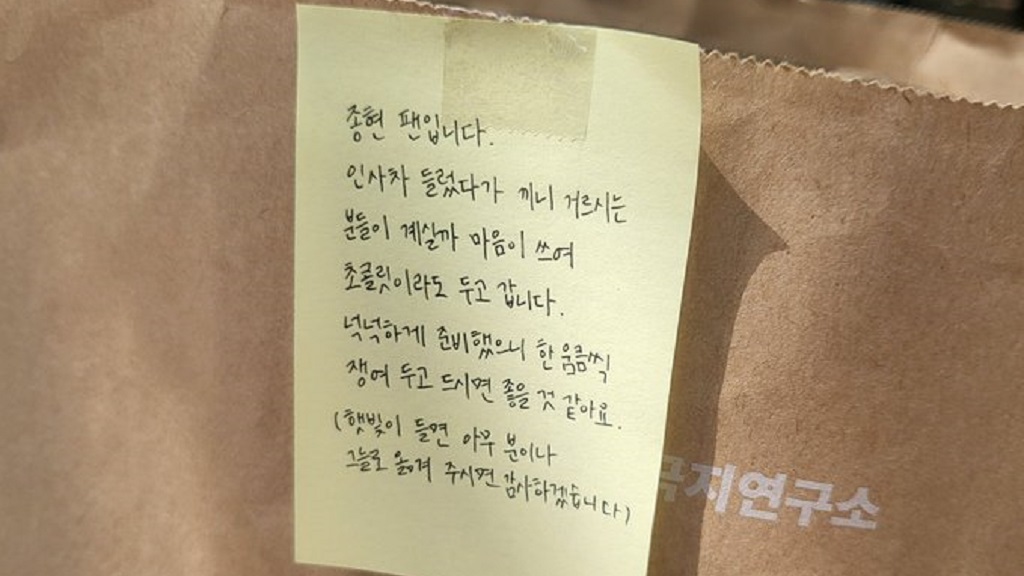 종현 팬입니다.
인사차 들렀다가 끼니 거르시는
분들이 계실까 마음이 쓰여
초콜릿이라도 두고 갑니다.
넉넉하게 준비했으니 한 움큼씩
쟁여 두고 드시면 좋을 것 같아요.
(햇빛이 들면 아무 분이나
그늘로 옮겨 주시면 감사하겠습니다)
극지연구소